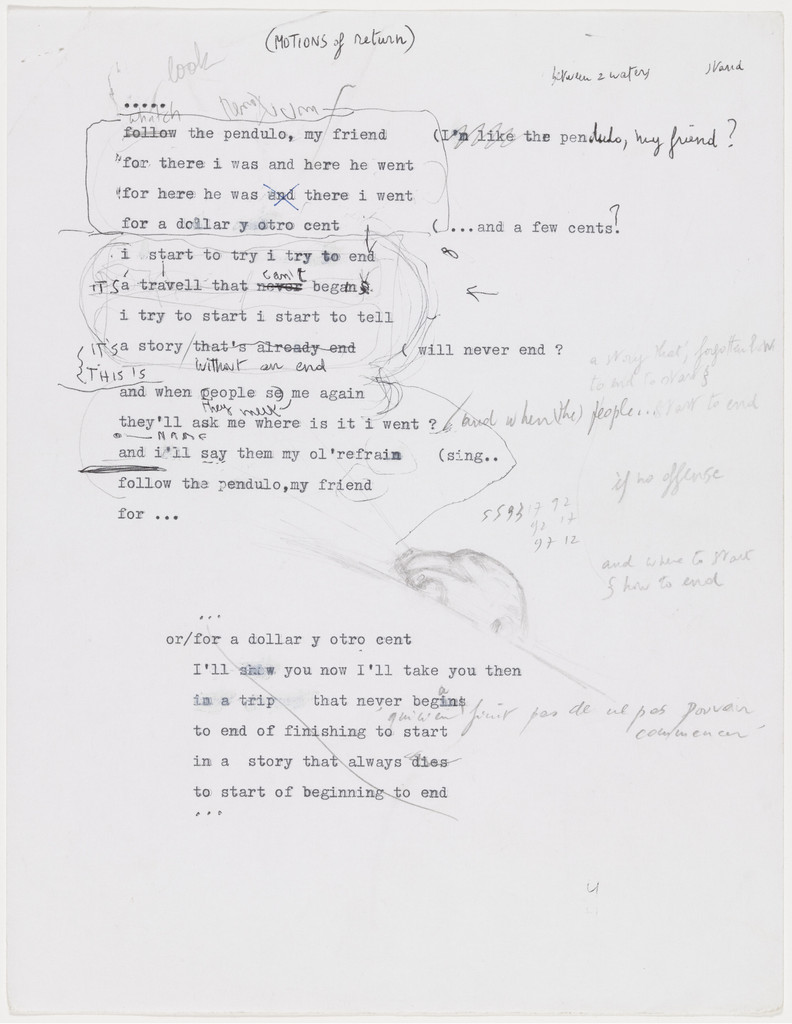 (MOTIONS of return)
look
between 2 waters
.....
follow the pendulo, my friend (I'm like the pendulo, my friend ?
"for there i was and here he went
"for here he was and there i went
for a dollar y otro cent (...and a few cents?
i start to try i try to end
IT'S a travell that never can't began
i try to start i start to tell
IT'S a story that's already end ( will never end ?
{THIS IS without an end
and when people se me again
they meet
they'll ask me where is it i went ? and when (the) people... start to end
and i'll say them my ol'refrain (sing..
follow the pendulo,my friend
for ...
if no offense
5593 17 92
92 17
97 12
and where to start
& how to end
...
or/for a dollar y otro cent
I'll show you now I'll take you then
in a trip that never begins
to end of finishing to start
finit pas de ne pas pouvoir
commencer
in a story that always dies
to start of beginning to end
...
4